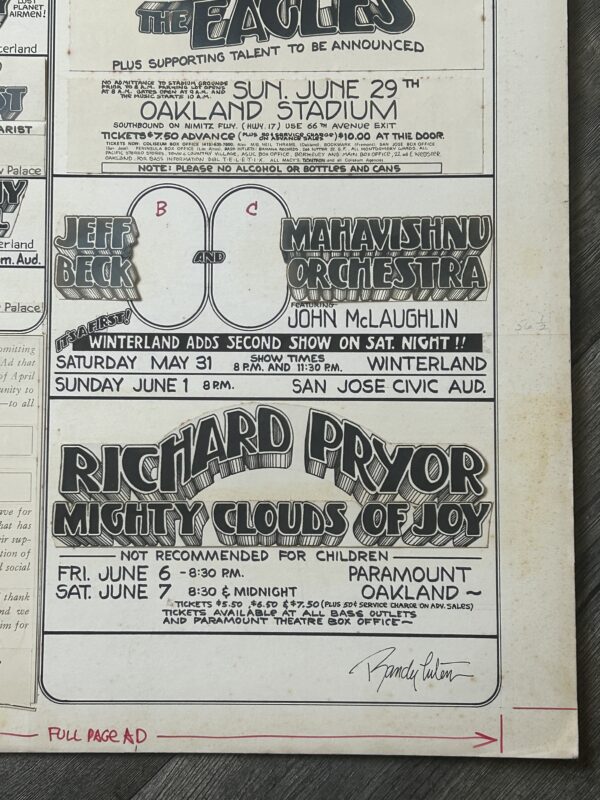 LOST
PLANET
AIRMEN!
THE EAGLES
PLUS SUPPORTING TALENT TO BE ANNOUNCED
NO ADMITTANCE TO STADIUM GROUNDS
PRIOR TO 8 A.M. PARKING LOT OPENS
AT 8 A.M. GATES OPEN AT 9 A.M. AND
THE MUSIC STARTS 10 A.M.
SUN. JUNE 29TH
OAKLAND STADIUM
SOUTHBOUND ON NIMITZ FWY. (HWY. 17) USE 66TH AVENUE EXIT
TICKETS $7.50 ADVANCE (PLUS 50¢ SERVICE CHARGE ON ADVANCE SALES) $10.00 AT THE DOOR.
TICKETS NOW: COLISEUM BOX OFFICE
NOTE: PLEASE NO ALCOHOL OR BOTTLES AND CANS
erland
ST
ARIST
Palace
erland
m. Aud.
Palace
B
C
JEFF
BECK
AND
MAHAVISHNU
ORCHESTRA
FEATURING
JOHN McLAUGHLIN
IT'S A FIRST!
WINTERLAND ADDS SECOND SHOW ON SAT. NIGHT !!
SATURDAY MAY 31 SHOW TIMES 8 P.M. AND 11:30 P.M. WINTERLAND
SUNDAY JUNE 1 8 P.M. SAN JOSE CIVIC AUD.
omitting
Ad that
of April
unity to
—to all
RICHARD PRYOR
MIGHTY CLOUDS OF JOY
NOT RECOMMENDED FOR CHILDREN
FRI. JUNE 6 - 8:30 P.M. PARAMOUNT
SAT. JUNE 7 8:30 & MIDNIGHT OAKLAND ~
TICKETS $5.50, $6.50 & $7.50 (PLUS 50¢ SERVICE CHARGE ON ADV. SALES)
TICKETS AVAILABLE AT ALL BASS OUTLETS
AND PARAMOUNT THEATRE BOX OFFICE~
ave for
hat has
eir sup-
tion of
d social
thank
nd we
im for
Randy Tuten
FULL PAGE AD